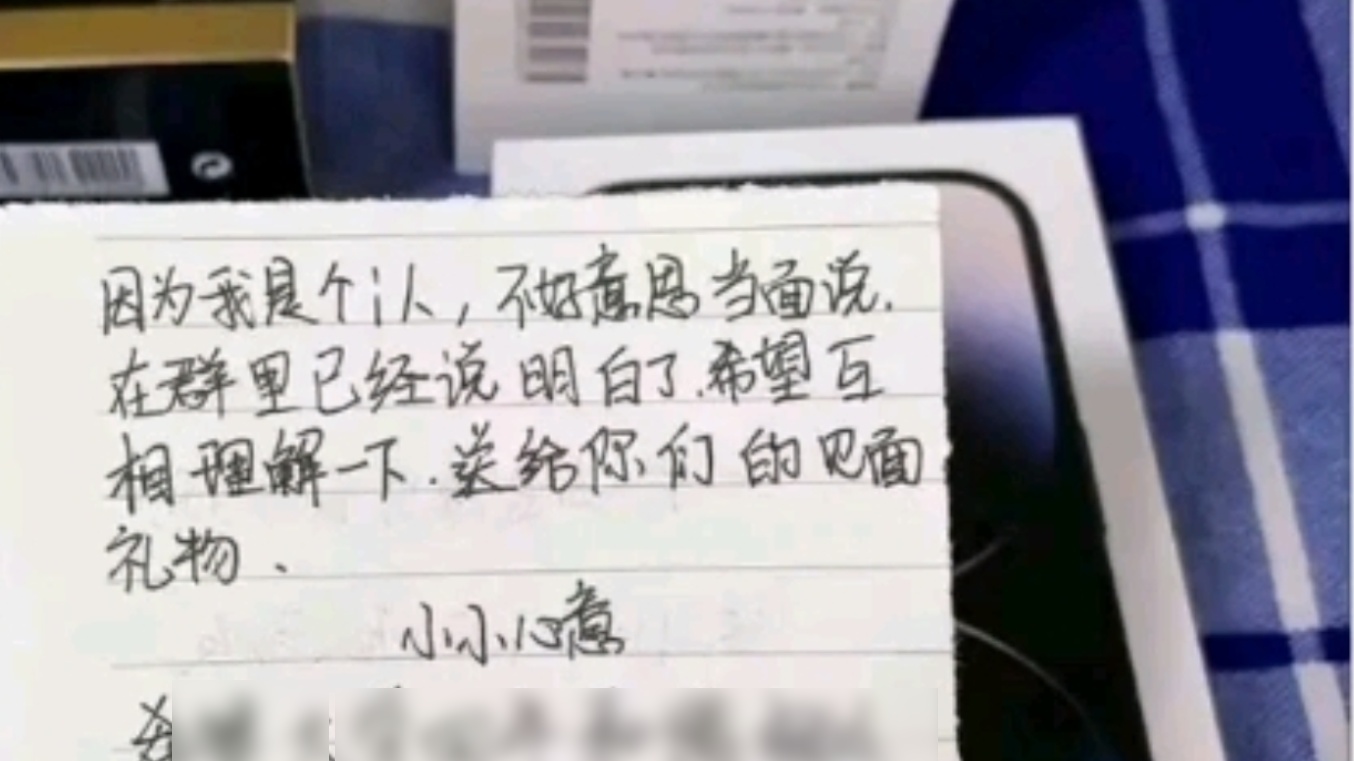 因为我是个i人，不好意思当面说.
在群里已经说明白了.希望互
相理解一下.送给你们的见面
礼物.
小小心意